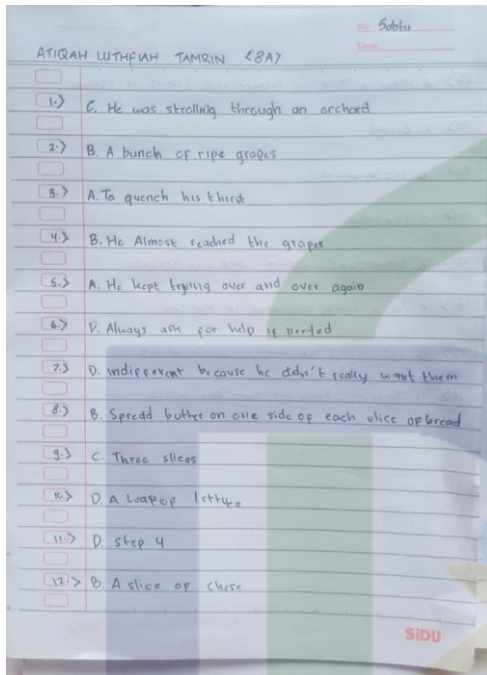 No. Sabtu
Date:
ATIQAH LUTHFIAH TAMRIN <8A>
1.> C. He was strolling through an orchard
2.> B. A bunch of ripe grapes
3.> A. To quench his thirst
4.> B. He Almost reached the grapes
5.> A. He kept trying over and over again
6.> D. Always ask for help if needed
7.> D. indifferent because he didn't really want them
8.> B. Spread butter on one side of each slice of bread
9.> C. Three slices
10.> D. A Leaf of lettuce
11.> D. step 4
12.> B. A slice of chese
SiDU